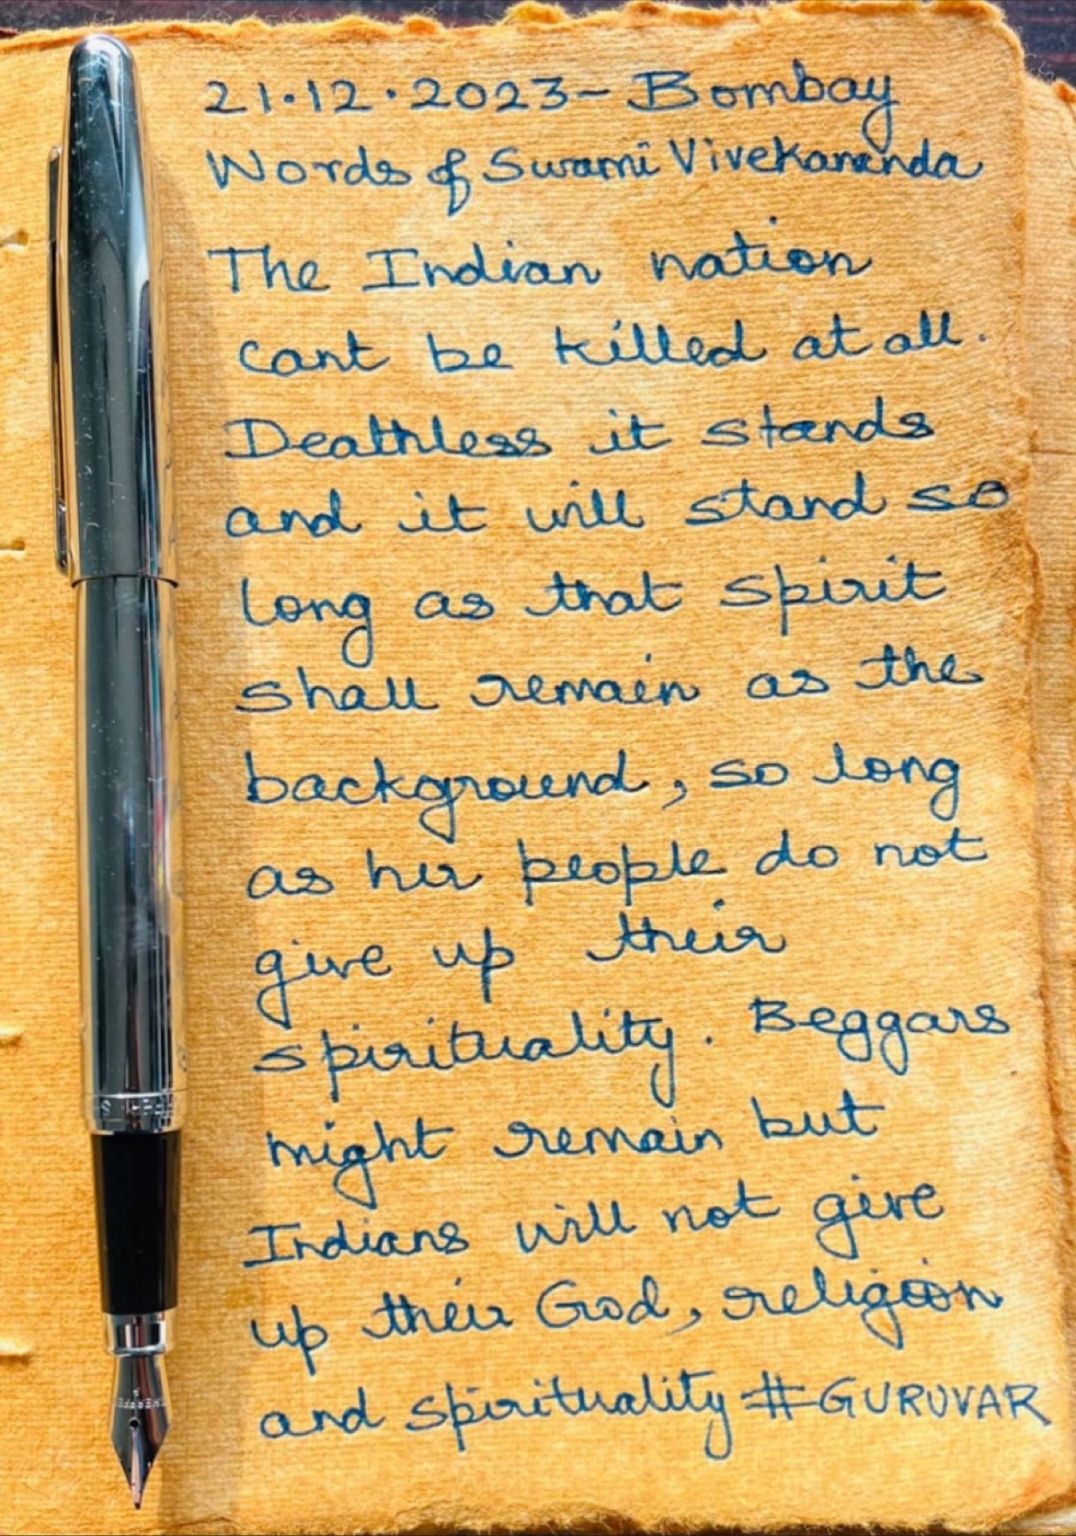 21.12.2023- Bombay
Words of Swami Vivekananda
The Indian nation
cant be killed at all.
Deathless it stands
and it will stand so
long as that spirit
shall remain as the
background, so long
as her people do not
give up their
spirituality. Beggars
might remain but
Indians will not give
up their God, religion
and spirituality #GURUVAR